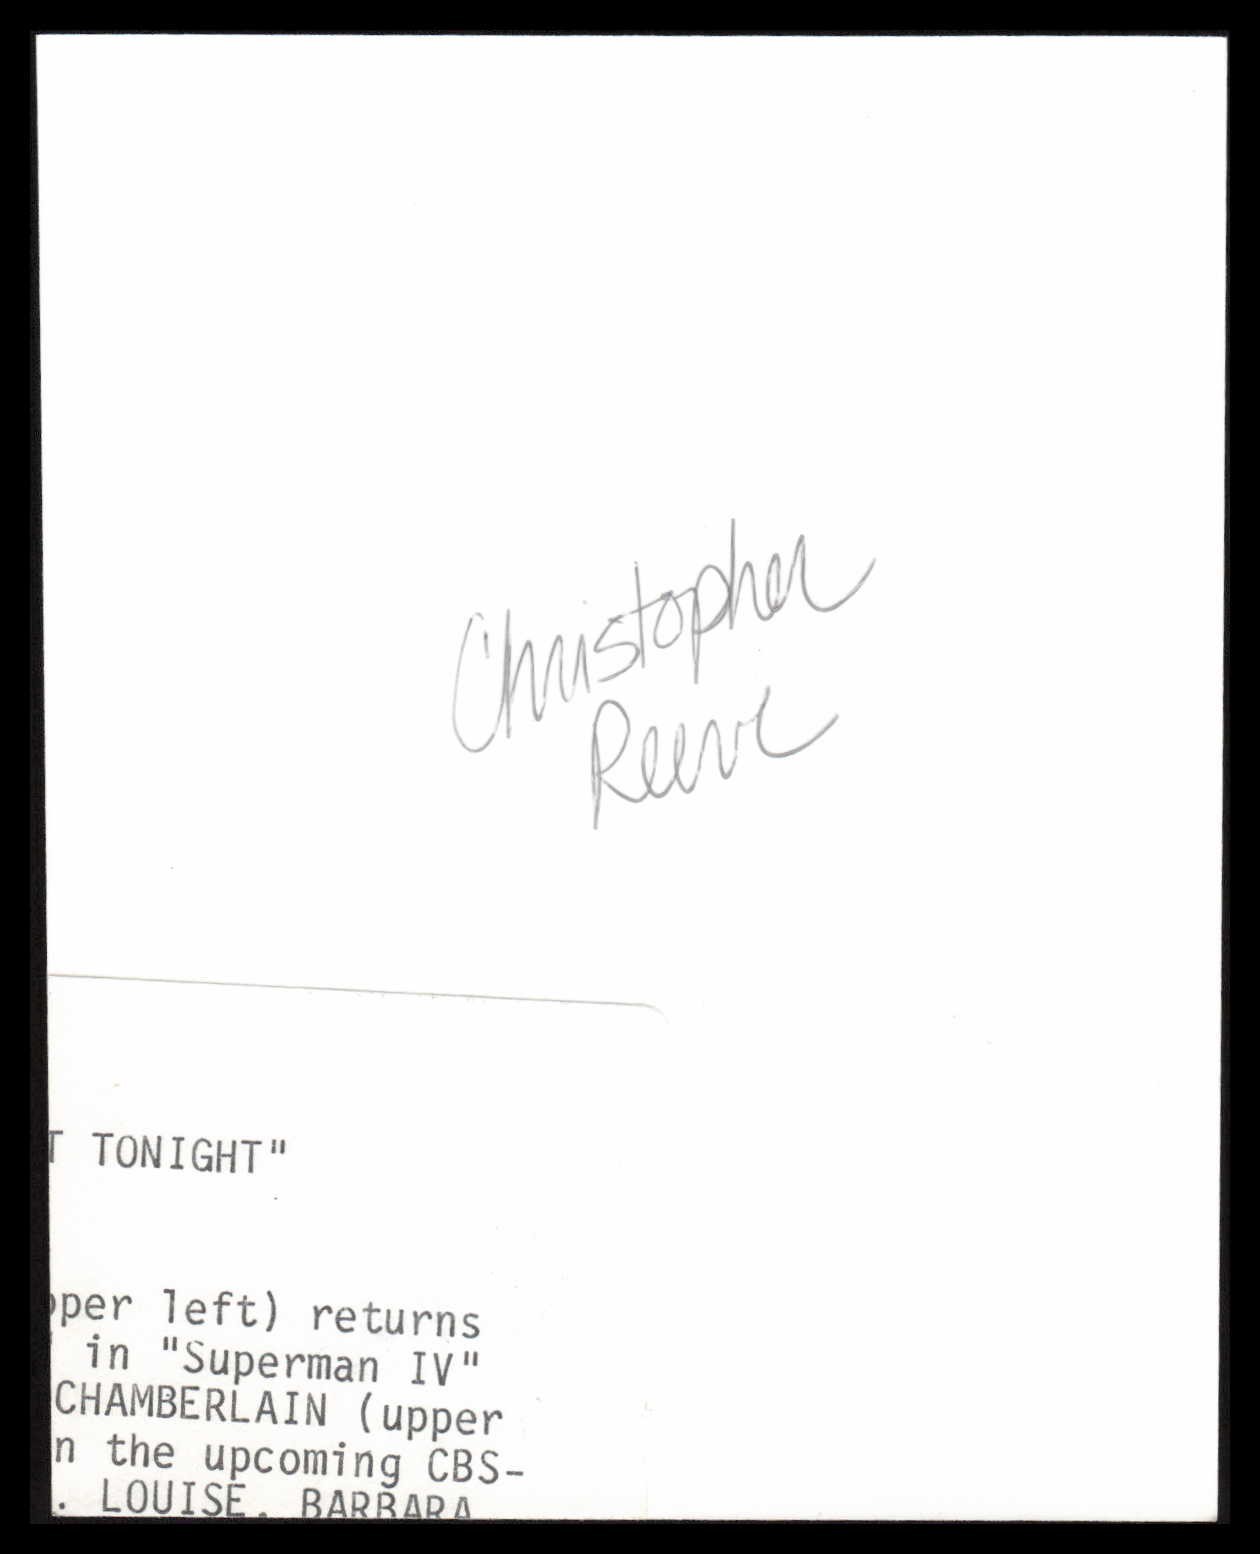 Christopher
Reeve
T TONIGHT"
pper left) returns
in "Superman IV"
CHAMBERLAIN (upper
n the upcoming CBS-
. LOUISE, BARBARA